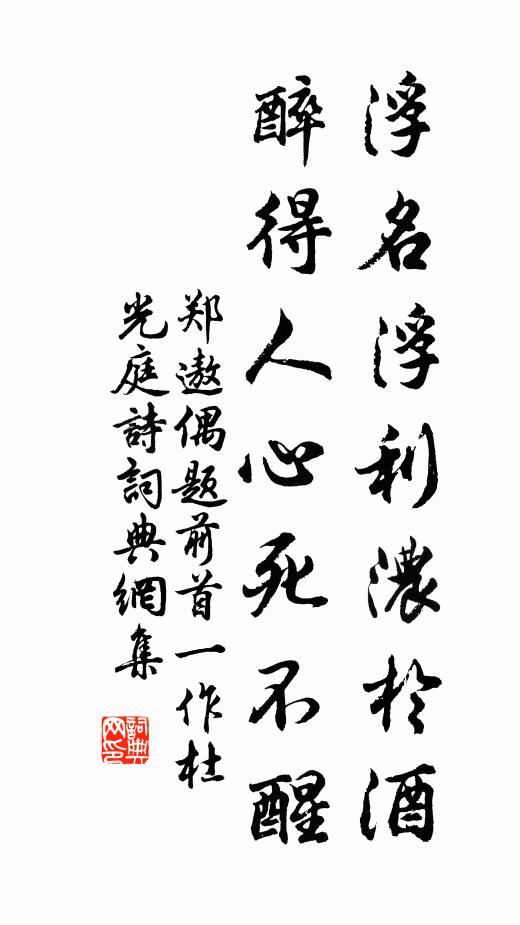 浮名浮利濃於酒
醉得人心死不醒
郑遨偶题前首一作杜
光庭詩詞典網集
詞典网印